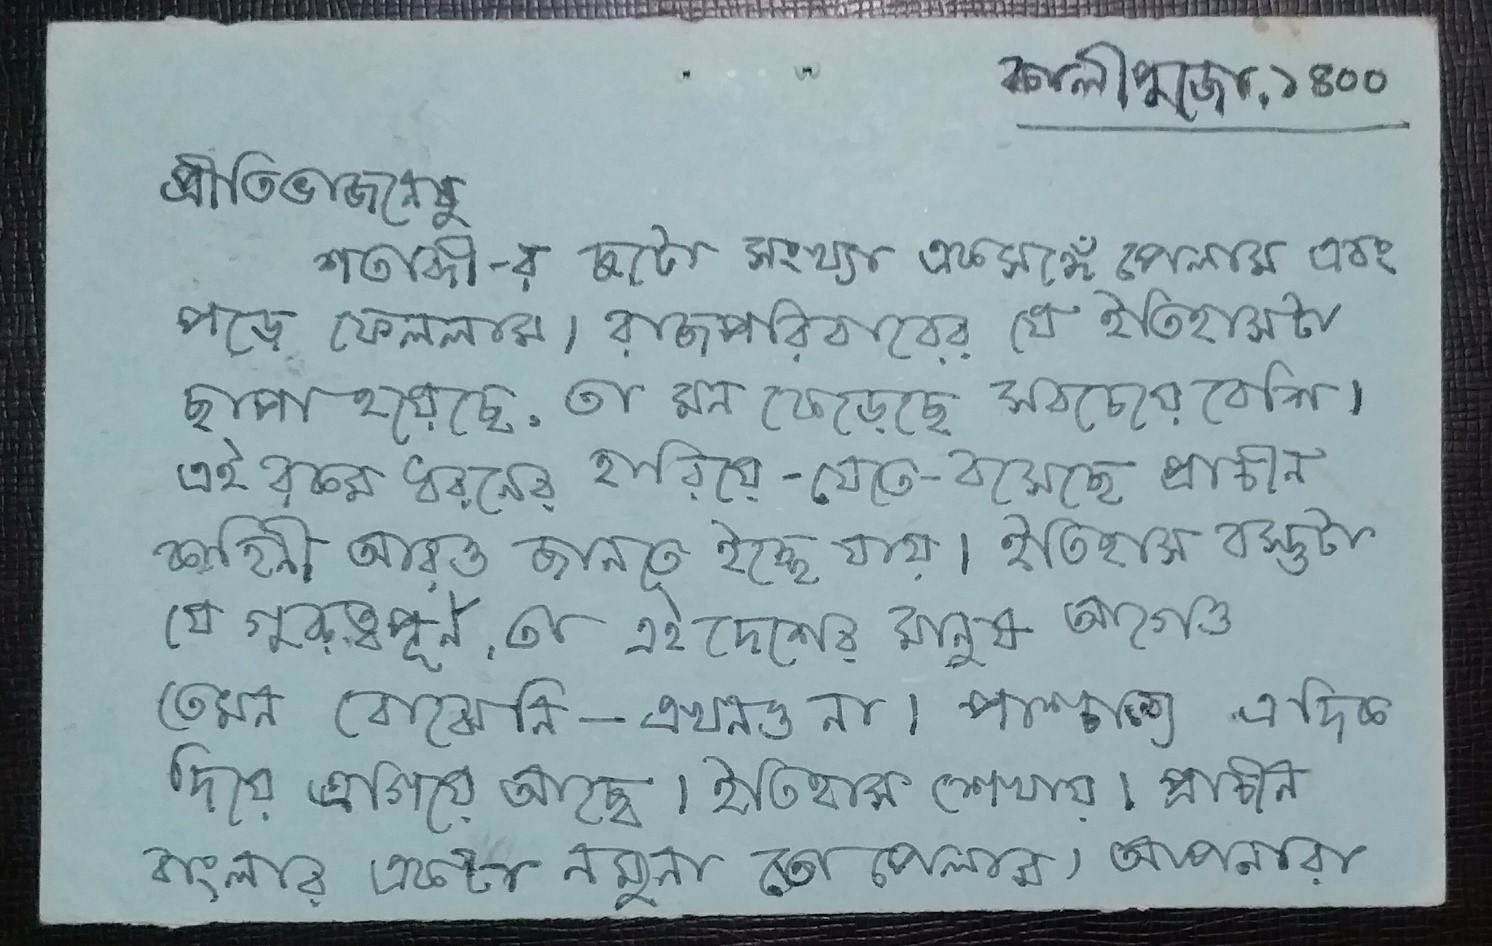 কালীপুজো, ১৪০০
প্রীতিভাজনেষু
শতাব্দী-র দুটো সংখ্যা একসঙ্গে পেলাম এবং
পড়ে ফেললাম। রাজপরিবারের যে ইতিহাসটা
ছাপা হয়েছে, তা মন কেড়েছে সবচেয়ে বেশি।
এই রকম ধরনের হারিয়ে-যেতে-বসেছে প্রাচীন
কাহিনী আরও জানতে ইচ্ছে যায়। ইতিহাস বস্তুটা
যে গুরুত্বপূর্ণ, তা এই দেশের মানুষ আগেও
তেমন বোঝেনি — এখনও না। পাশ্চাত্য এদিক
দিয়ে এগিয়ে আছে। ইতিহাস শেখায়। প্রাচীন
বাংলার একটা নমুনা তো পেলাম, আপনারা